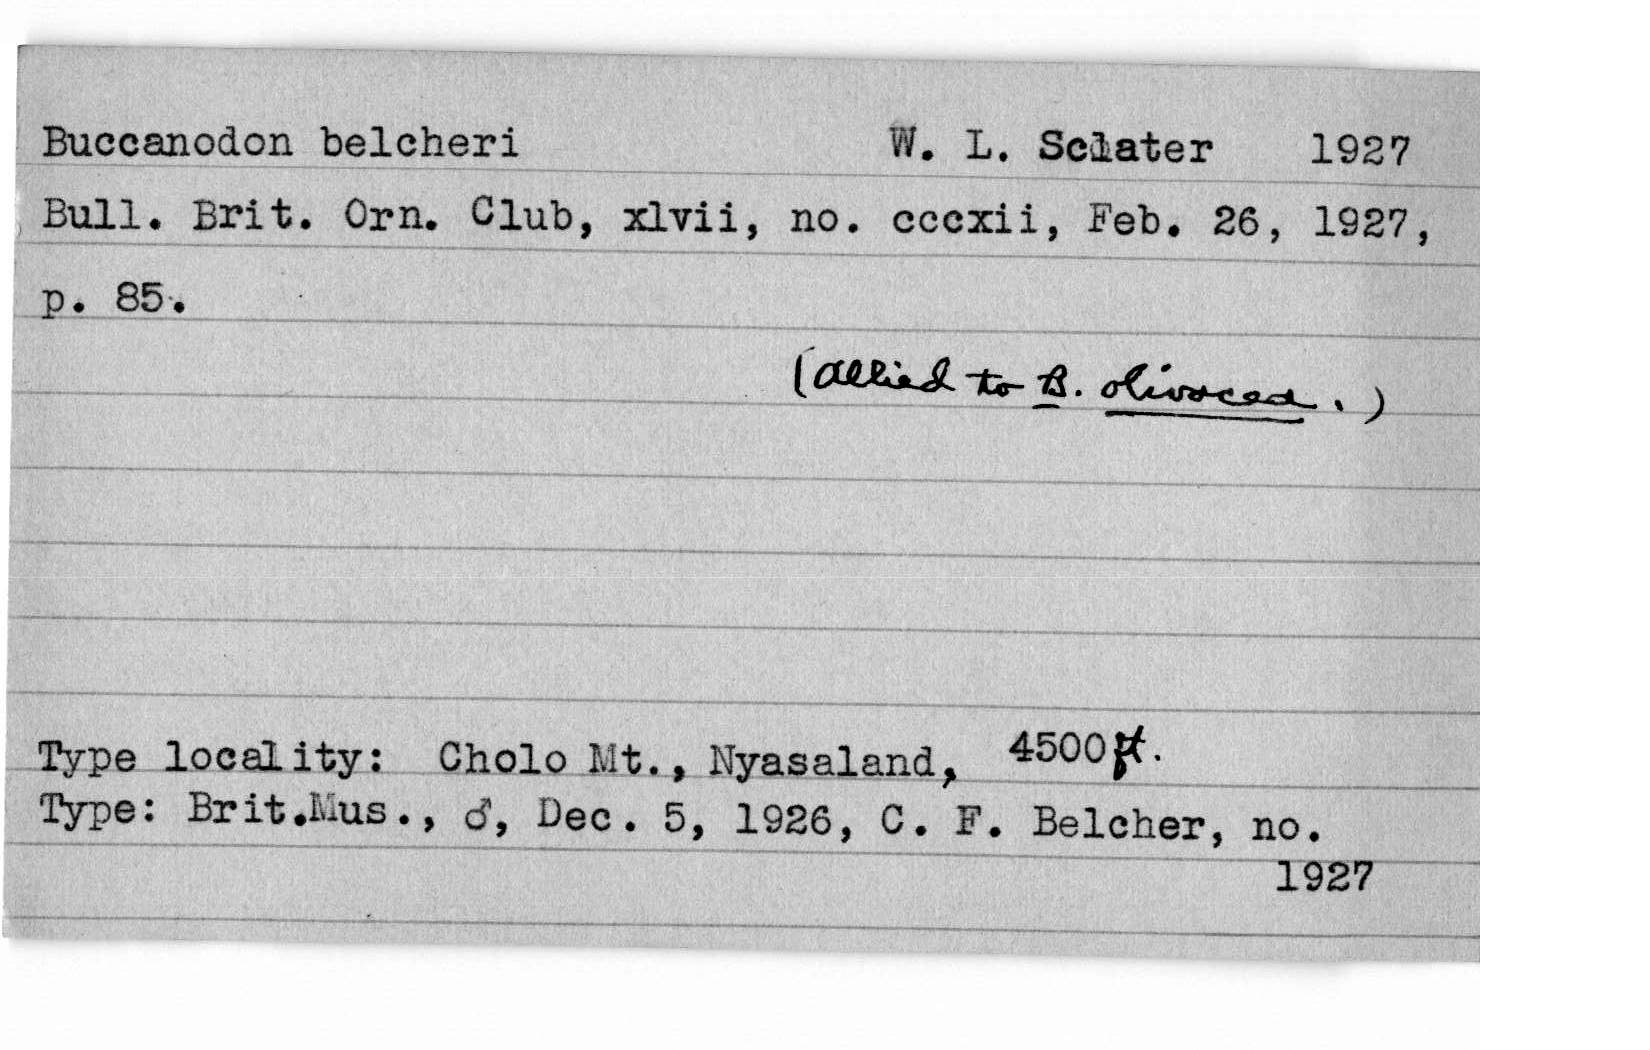 Buccanodon belcheri W. L. Sclater 1927
Bull. Brit. Orn. Club, xlvii, no. cccxii, Feb. 26, 1927,
p. 85.
(allied to B. olivacea.)
Type locality: Cholo Mt., Nyasaland, 4500 ft.
Type: Brit.Mus., ♂, Dec. 5, 1926, C. F. Belcher, no.
1927